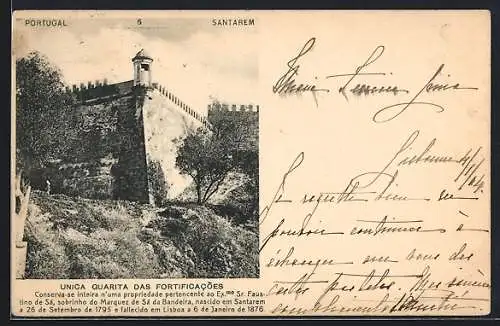 PORTUGAL 5 SANTAREM
UNICA GUARITA DAS FORTIFICAÇÕES
Conserva-se inteira n'uma propriedade pertencente ao Ex.mo Sr. Faus-
tino de Sá, sobrinho do Marquez de Sá da Bandeira, nascido em Santarem
a 26 de Setembro de 1795 e fallecido em Lisboa a 6 de Janeiro de 1876
Lisbonne
Je regrette bien ne
pouvoir continuer à
échanger avec vous des
cartes postales. Mes sincères
compliments